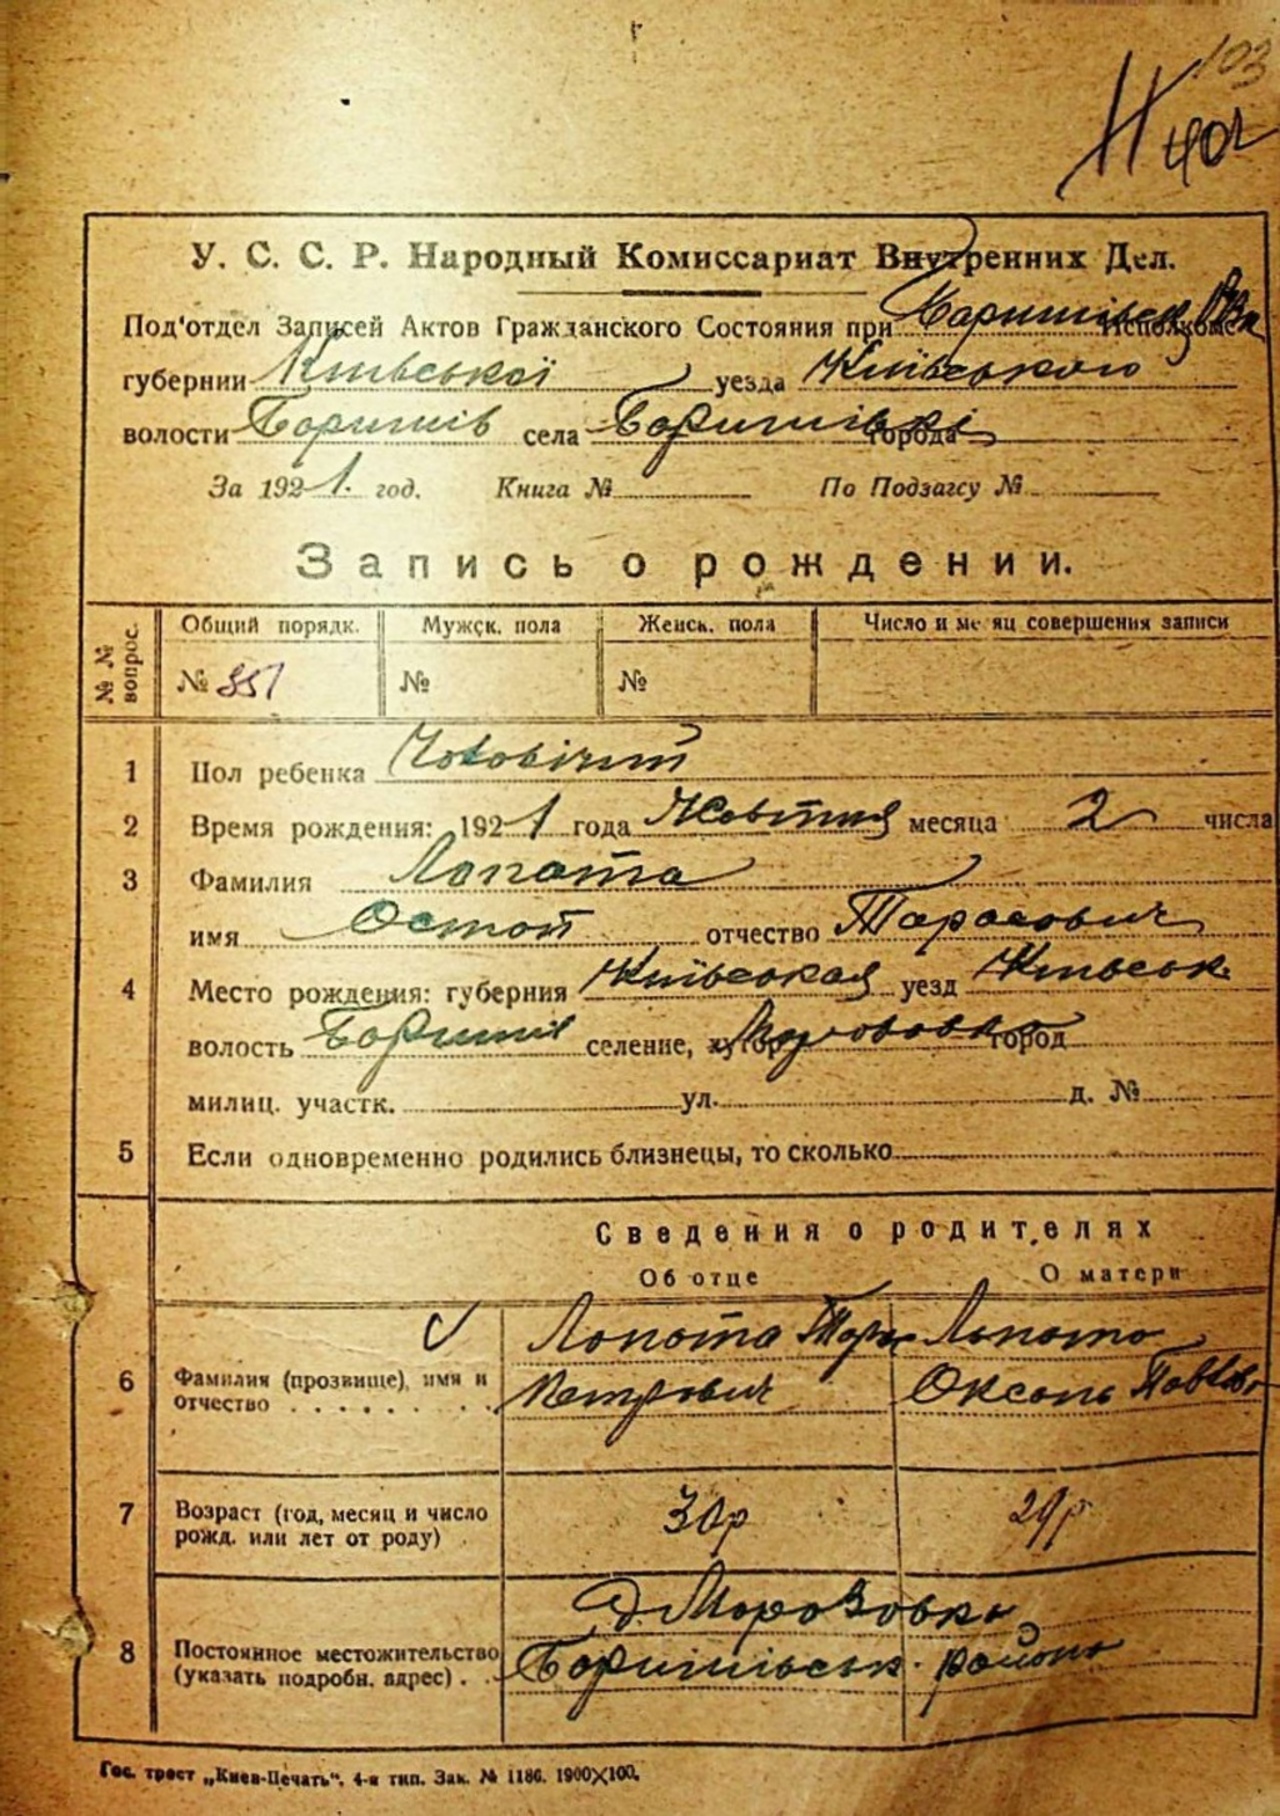 103
Н 402
У. С. С. Р. Народный Комиссариат Внутренних Дел.
Под'отдел Записей Актов Гражданского Состояния при Баришівськ. РВК Исполкоме
губернии Київської уезда Київського
волости Баришів села Баришівкі города
За 1921. год. Книга № По Подзагсу №
Запись о рождении.
№ № вопрос.
Общий порядк. Мужск. пола Женск. пола Число и месяц совершения записи
№ 351 № №
1 Пол ребенка Чоловічий
2 Время рождения: 1921 года Жовтня месяца 2 числа
3 Фамилия Лопата
имя Остап отчество Тарасович
4 Место рождения: губерния Київськая уезд Київськ.
волость Баришів селение, хутор Морозовка город
милиц. участк. ул. д. №
5 Если одновременно родились близнецы, то сколько
Сведения о родителях
Об отце О матери
6 Фамилия (прозвище), имя и отчество Лопата Тарас Петрович Лопата Оксана Павлов
7 Возраст (год, месяц и число рожд. или лет от роду) 30р 29р
8 Постоянное местожительство (указать подробн. адрес) с. Морозовка
Баришівськ. района
Гос. трест „Киев-Печать“. 4-я тип. Зак. № 1186. 1900×100.